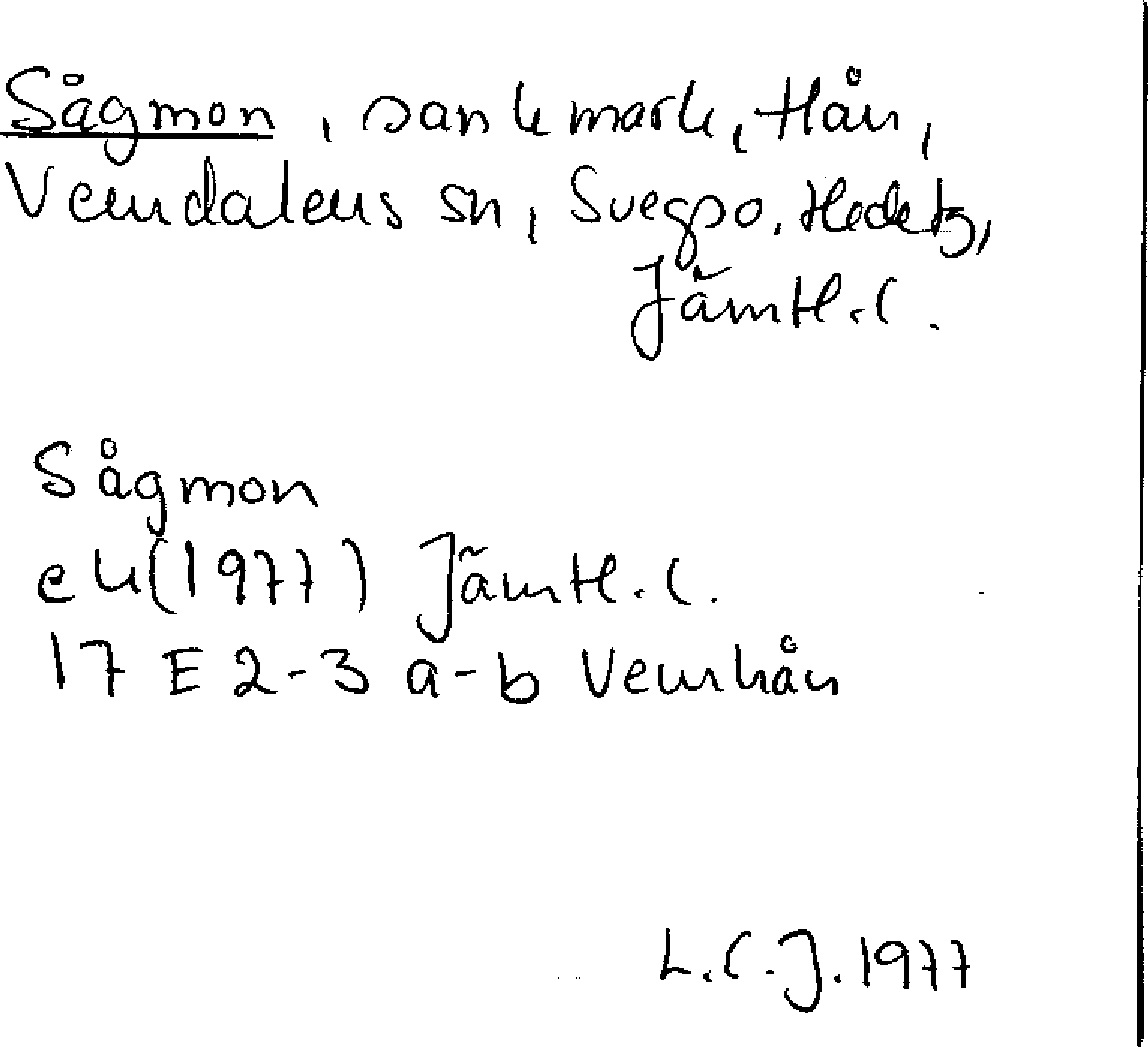 Sågmon, sank mark, Hån,
Vemdalens sn, Svegspo, Hedetg,
Jämtl. l.
Sågmon
ek(1977) Jämtl. l.
17 E 2-3 a-b Vemhån
L.C.J. 1977